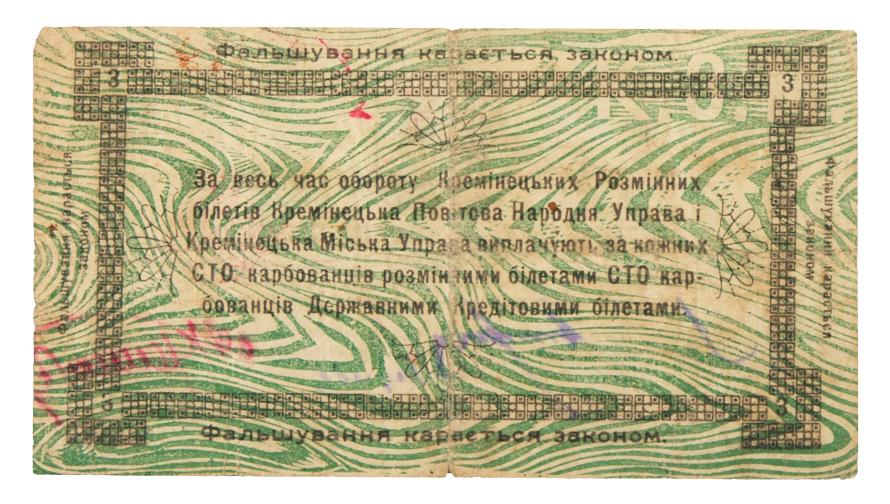 Фальшування карається законом.
3 3
За весь час обороту Кремінецьких Розмінних
білетів Кремінецька Повітова Народня Управа і
Кремінецька Міська Управа виплачують за кожних
СТО карбованців розмінними білетами СТО кар-
бованців Державними Кредітовими білетами.
Фальшування карається законом.
Фальшування карається законом.
3 3
Фальшування карається законом.